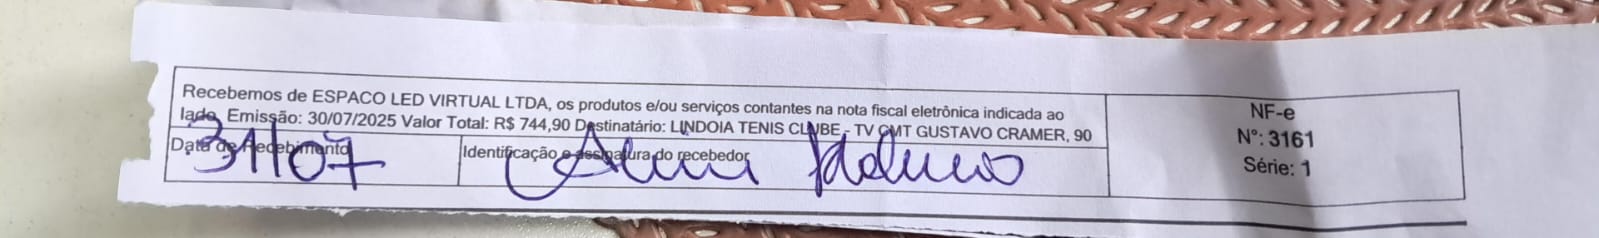 Recebemos de ESPACO LED VIRTUAL LTDA, os produtos e/ou serviços contantes na nota fiscal eletrônica indicada ao
lado, Emissão: 30/07/2025 Valor Total: R$ 744,90 Destinatário: LINDOIA TENIS CLUBE - TV CMT GUSTAVO CRAMER, 90
Data de Recebimento
31/07
Identificação e assinatura do recebedor
NF-e
Nº: 3161
Série: 1